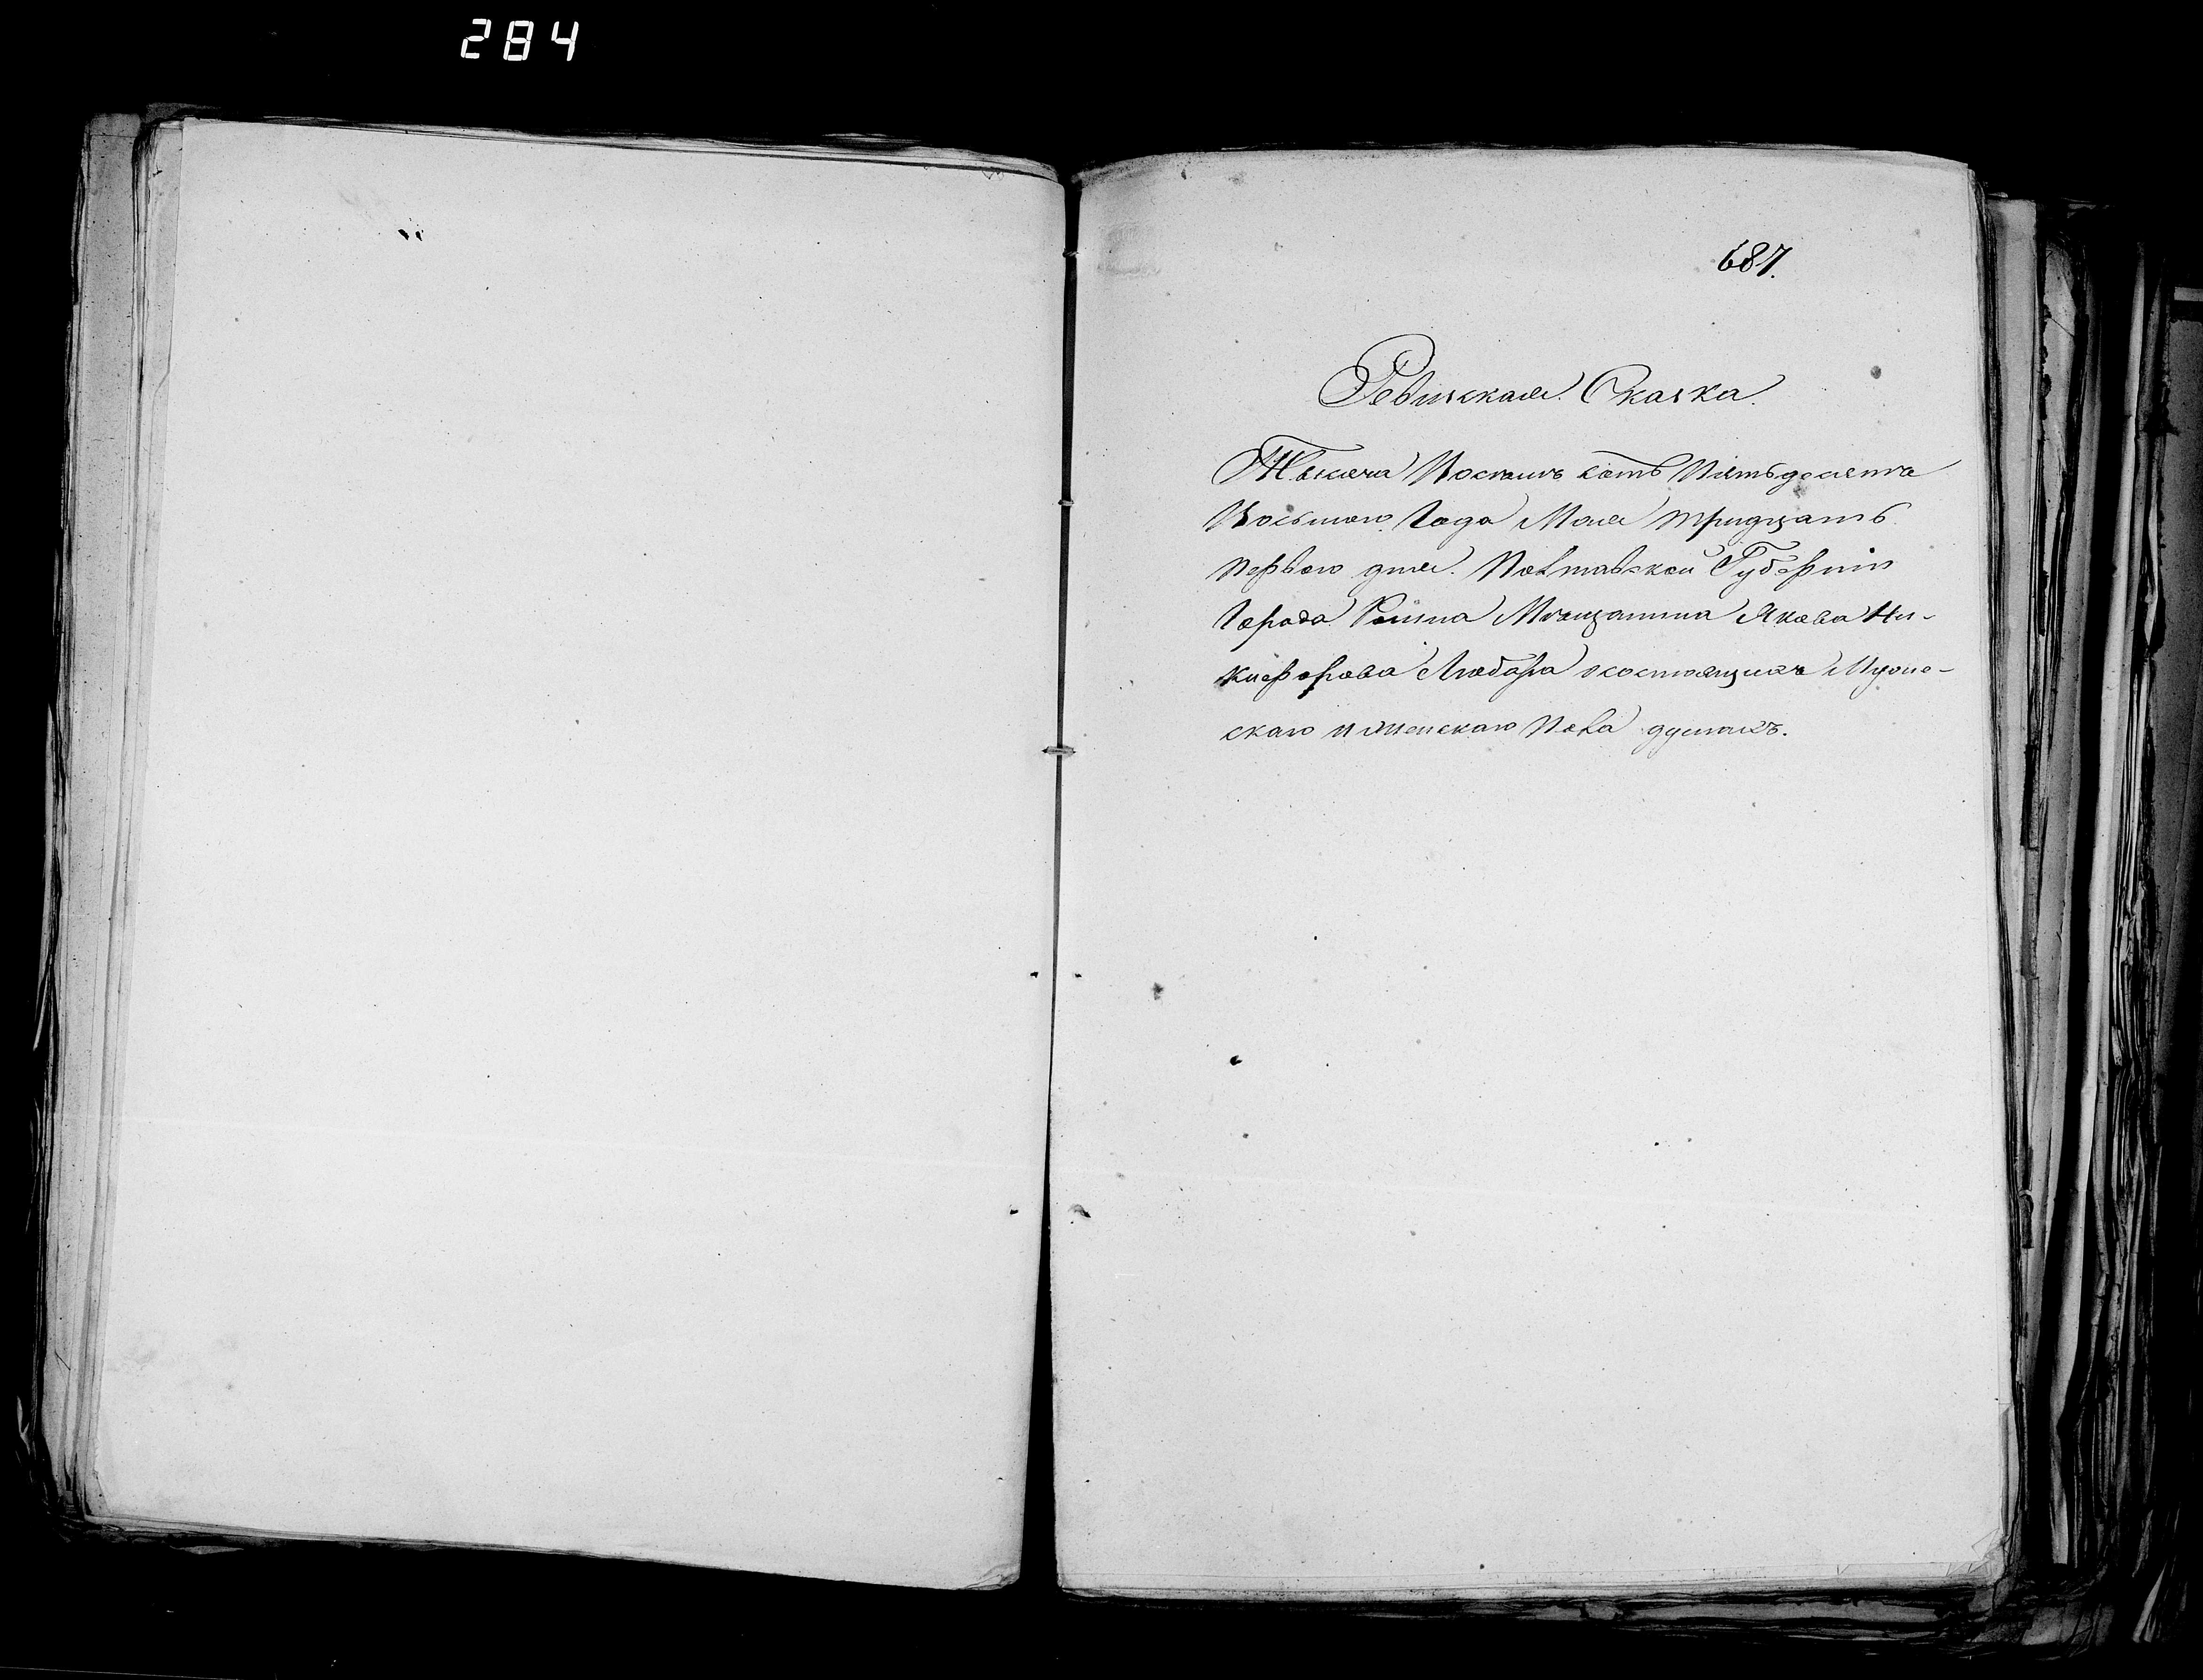 284
687.
Ревизская Сказка.
Тысяча Восемь сотъ Пятьдесята
Восьмаго Года Мая тридцать
Перваго дня. Полтавской Губерніи
Города Ромна Мѣщанина Якова Ни-
кифорова о состоящихъ Мужe-
скаго и женскаго Пола душахъ.